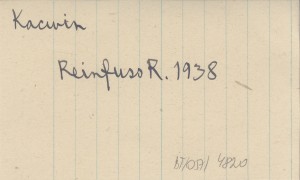 Kacwin
Reinfuss R. 1938
4820